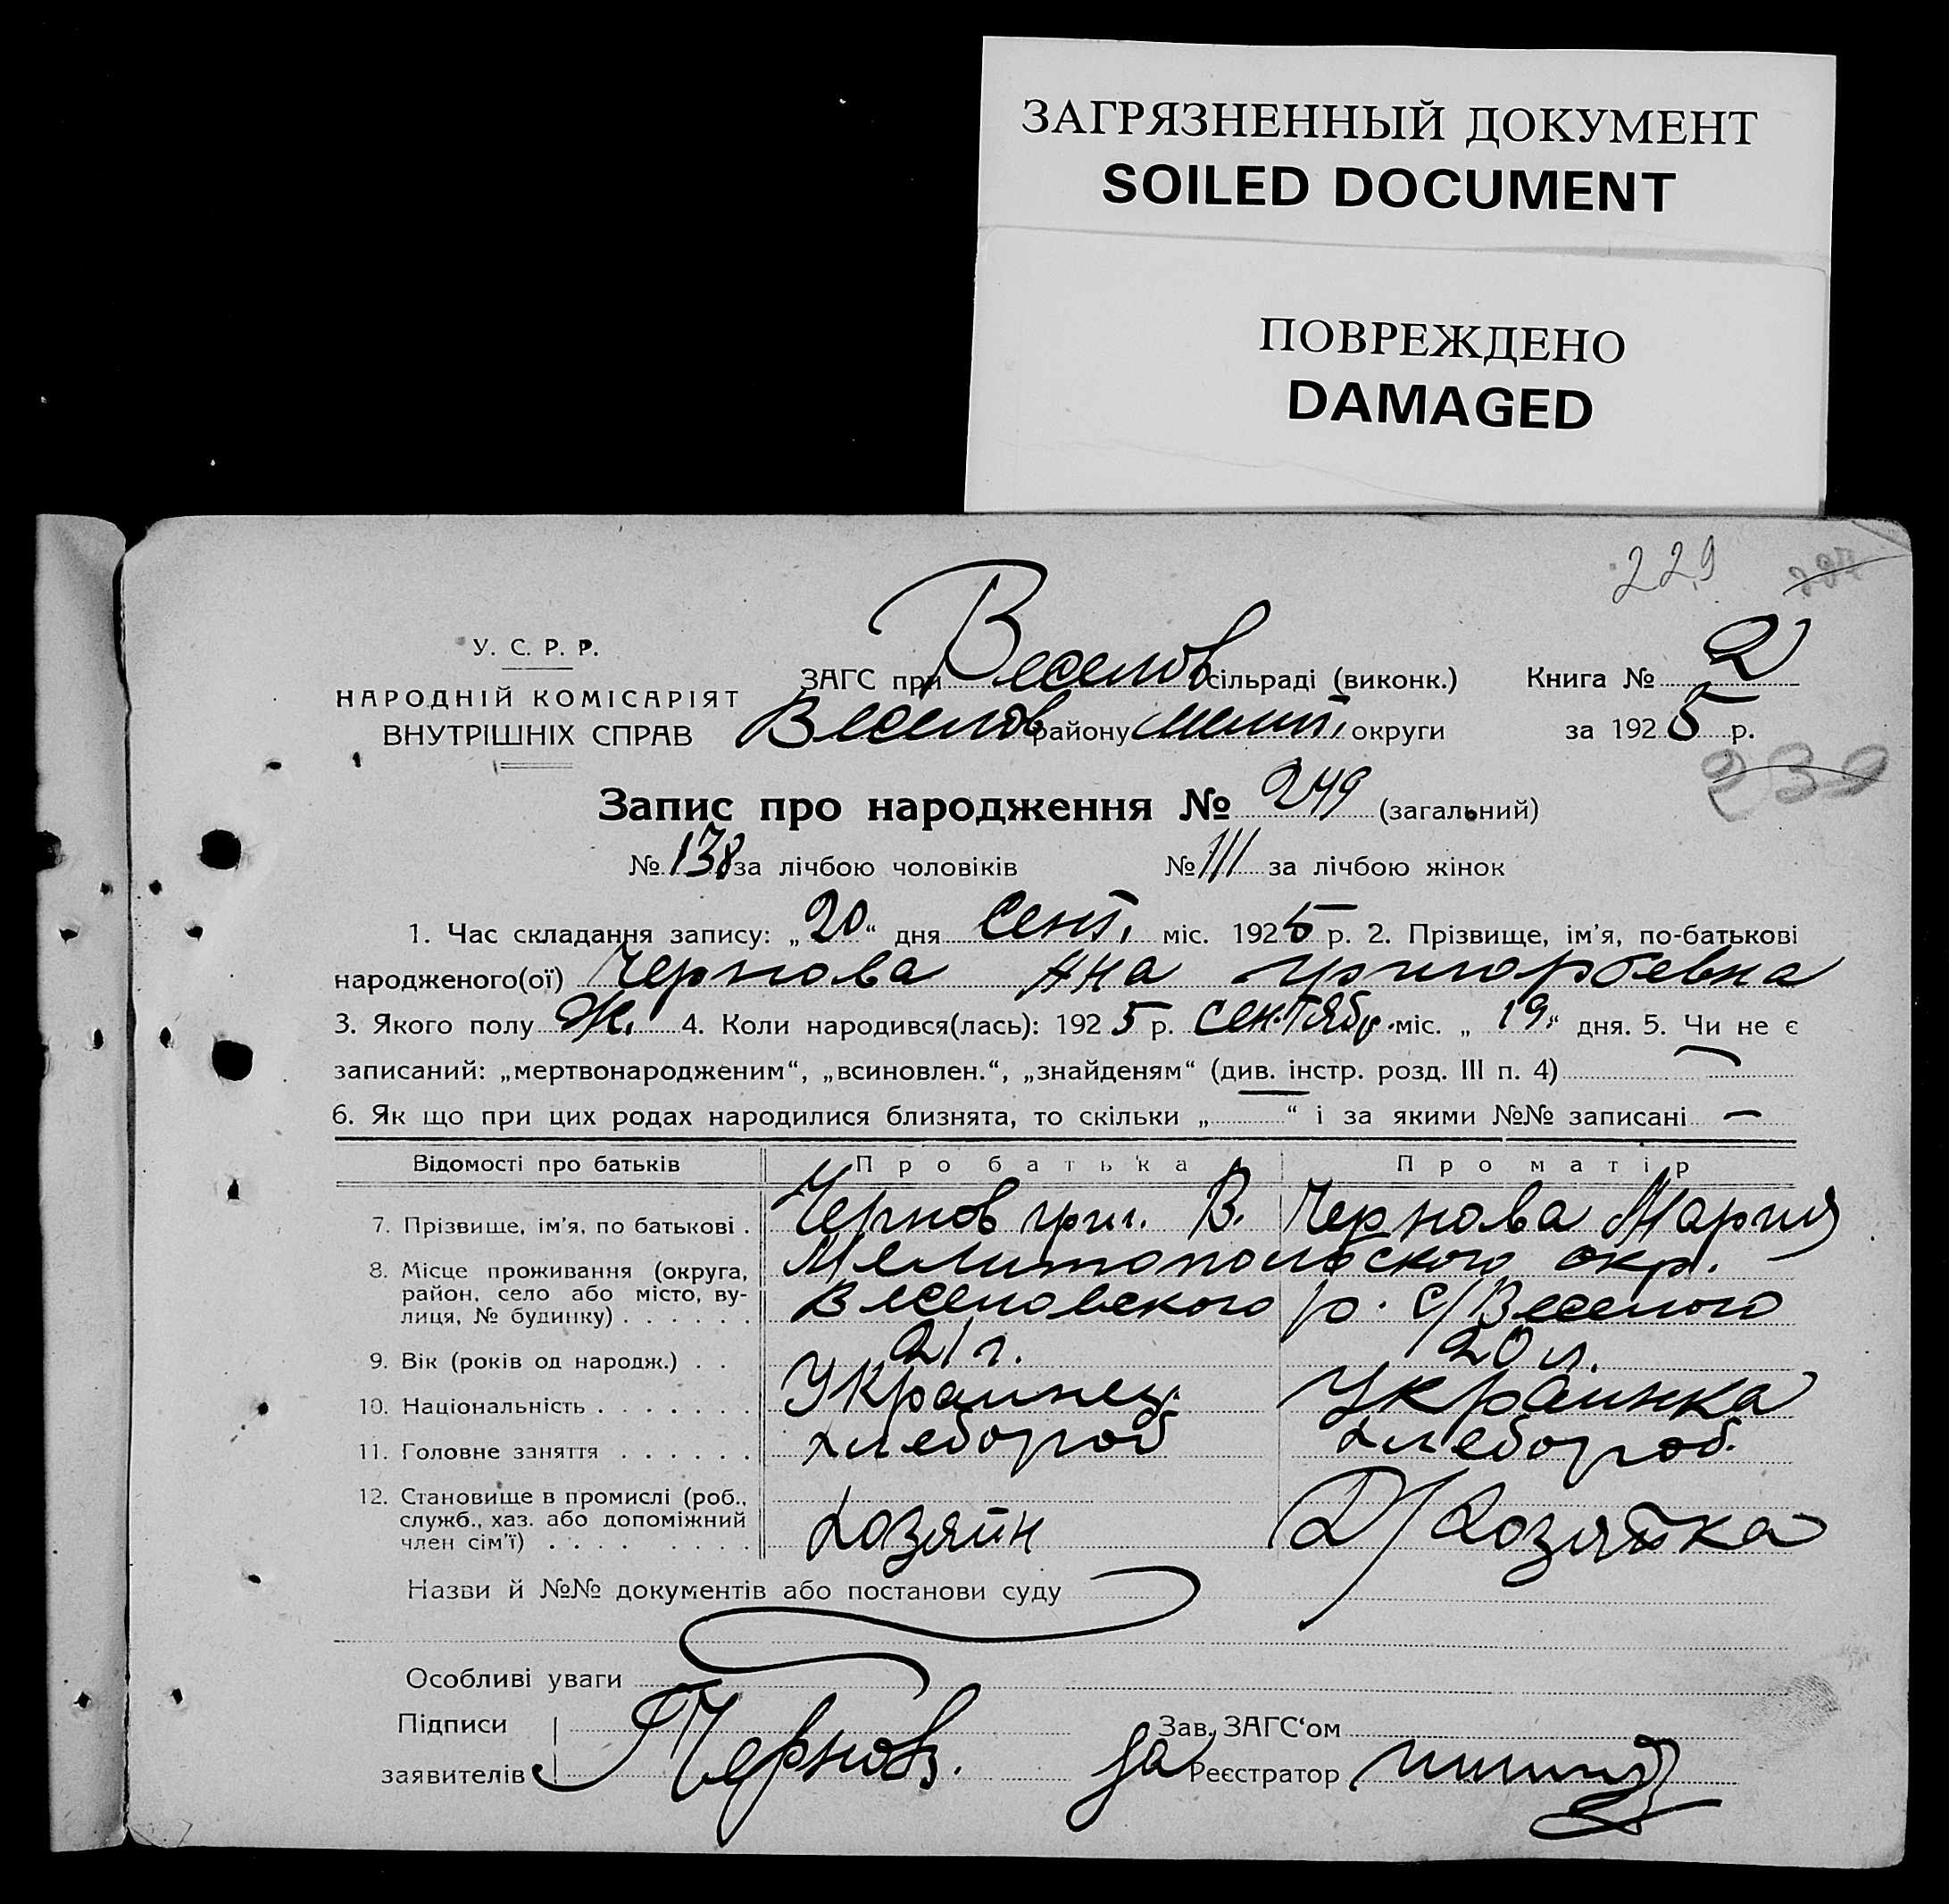 ЗАГРЯЗНЕННЫЙ ДОКУМЕНТ
SOILED DOCUMENT
ПОВРЕЖДЕНО
DAMAGED
229
У. С. Р. Р.
НАРОДНІЙ КОМІСАРІЯТ
ВНУТРІШНІХ СПРАВ
ЗАГС при Веселов сільраді (виконк.)
Веселов району Мелит. округи
Книга № 2
за 1925 р.
239
Запис про народження № 249 (загальний)
№ 138 за лічбою чоловіків № 111 за лічбою жінок
1. Час складання запису: „20“ дня Сент. міс. 1925 р. 2. Прізвище, ім'я, по-батькові
народженого(ої) Чернова Ана Григорьевна
3. Якого полу Ж. 4. Коли народився(лась): 1925 р. Сентябр. міс. „19“ дня. 5. Чи не є
записаний: „мертвонародженим“, „всиновлен.“, „знайденям“ (див. інстр. розд. III п. 4) —
6. Як що при цих родах народилися близнята, то скільки „—“ і за якими №№ записані —
Відомості про батьків Про батька Про матір
7. Прізвище, ім'я, по батькові . Чернов Григ. В. Чернова Мария
8. Місце проживання (округа, Мелитопольского окр.
район, село або місто, ву- Веселовского р. с/Веселого
лиця, № будинку) . . . . . .
9. Вік (років од народж.) . . 21 г. 20 л.
10. Національність . . . . . . . Украинец. Украинка
11. Головне заняття . . . . . . Хлебороб Хлебороб.
12. Становище в промислі (роб.,
служб., хаз. або допоміжний Хозяин Д/Хозяйка
член сім'ї) . . . . . . . .
Назви й №№ документів або постанови суду
Особливі уваги
Підписи
заявителів Чернов.
Зав. ЗАГС'ом
За Реєстратор